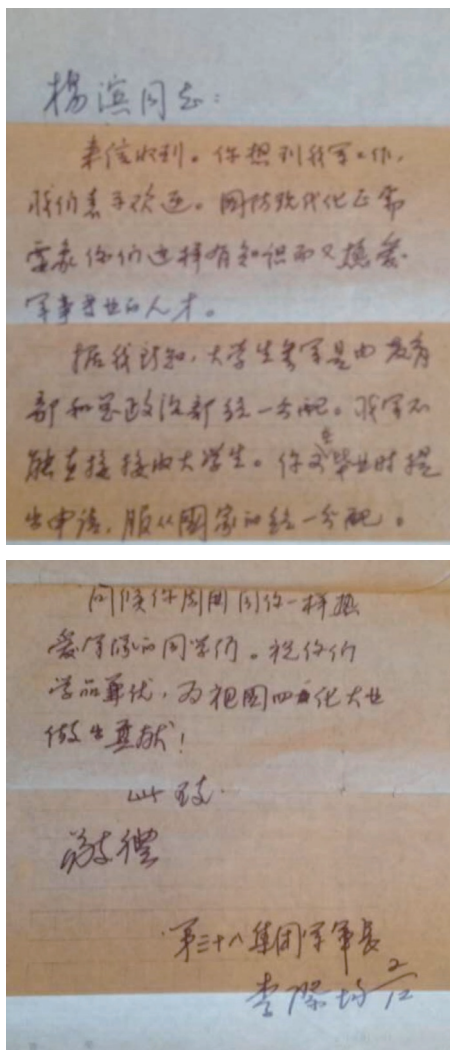 楊滨同志：
来信收到。你想到我军工作，
我们表示欢迎。國防现代化正需
需象你们这样有知识而又热爱
军事专业的人才。
据我所知，大学生参军是由教育
部和总政治部统一分配。我军不
能直接接收大学生。你在毕业时提
出申请，服从國家的统一分配。
问候你周围同你一样热
爱军队的同学们。祝你们
学品兼优，为祖国四化大业
做出贡献！
此致
敬禮
第三十八集团军军长
李際均 2/12